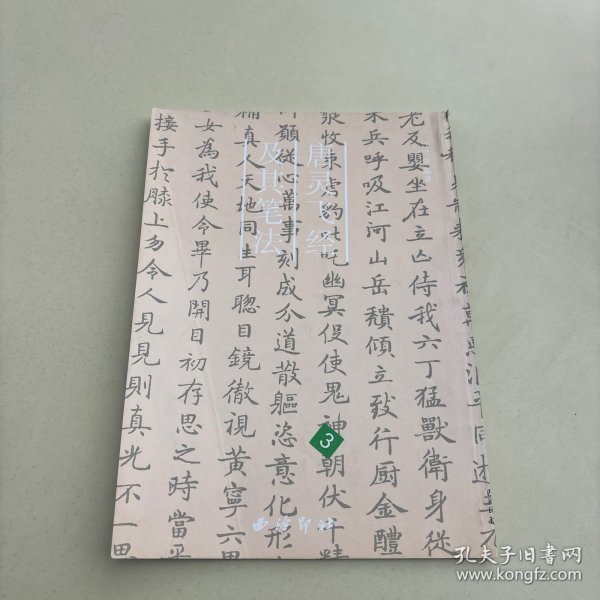 唐灵飞经
及其笔法
老反嬰坐在立亡侍我六丁猛獸衛身從
兵呼吸江河山岳穨傾立致行廚金醴
束虎豹叱吒幽冥役使鬼神朝伏千精
願從心萬事刻成分道散軀恣意化形
真人天地同生耳聰目鏡徹視黃寧六
女為我使令畢乃開目初存思之時當
接手於膝上勿令人見見則真光不一思
3
西泠印社
孔夫子旧书网
www.kongfz.com